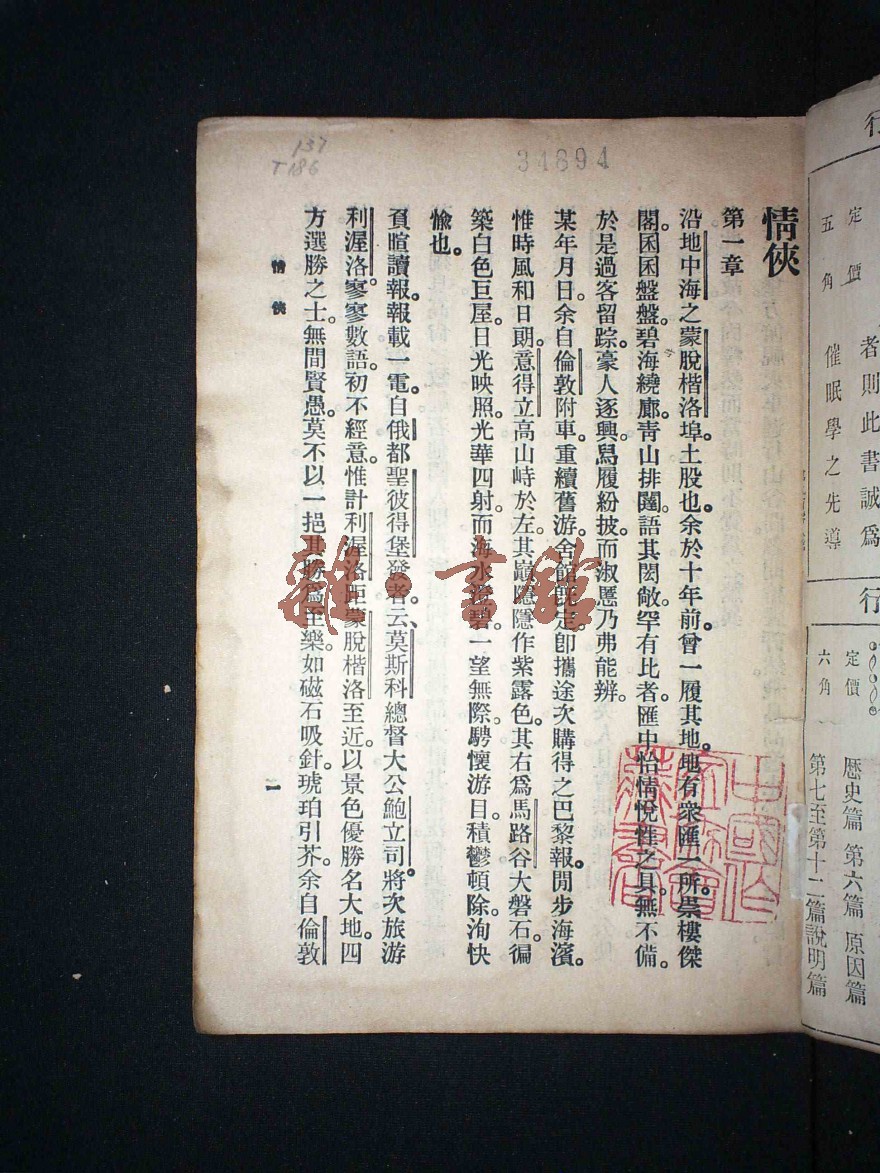 行
定價
五角
者則此書誠爲
催眠學之先導
行
定價
六角
歷史篇 第六篇 原因篇
第七至第十二篇說明篇
34894
137
T186
情俠
第一章
沿地中海之蒙脫楷洛埠。土股也。余於十年前。曾一履其地。地有衆匯一所。崇樓傑
閣。囷囷盤盤。碧海繞廊。靑山排闥。語其閎敞。罕有比者。匯中怡情悅性之具。無不備。
於是過客留踪。豪人逐興。舄履紛披。而淑慝乃弗能辨。
某年月日。余自倫敦附車。重續舊游。舍館旣定。卽攜途次購得之巴黎報。閒步海濱。
惟時風和日朗。意得立高山峙於左。其巔隱隱作紫露色。其右爲馬路谷大磐石。徧
築白色巨屋。日光映照。光華四射。而海水澄碧。一望無際。騁懷游目。積鬱頓除。洵快
愉也。
頁暄讀報。報載一電。自俄都聖彼得堡發者。云、莫斯科總督大公鮑立司。將次旅游
利渥洛。寥寥數語。初不經意。惟計利渥洛距蒙脫楷洛至近。以景色優勝名大地。四
方選勝之士。無間賢愚。莫不以一挹其勝爲至樂。如磁石吸針。琥珀引芥。余自倫敦
情俠
一
雜·書館